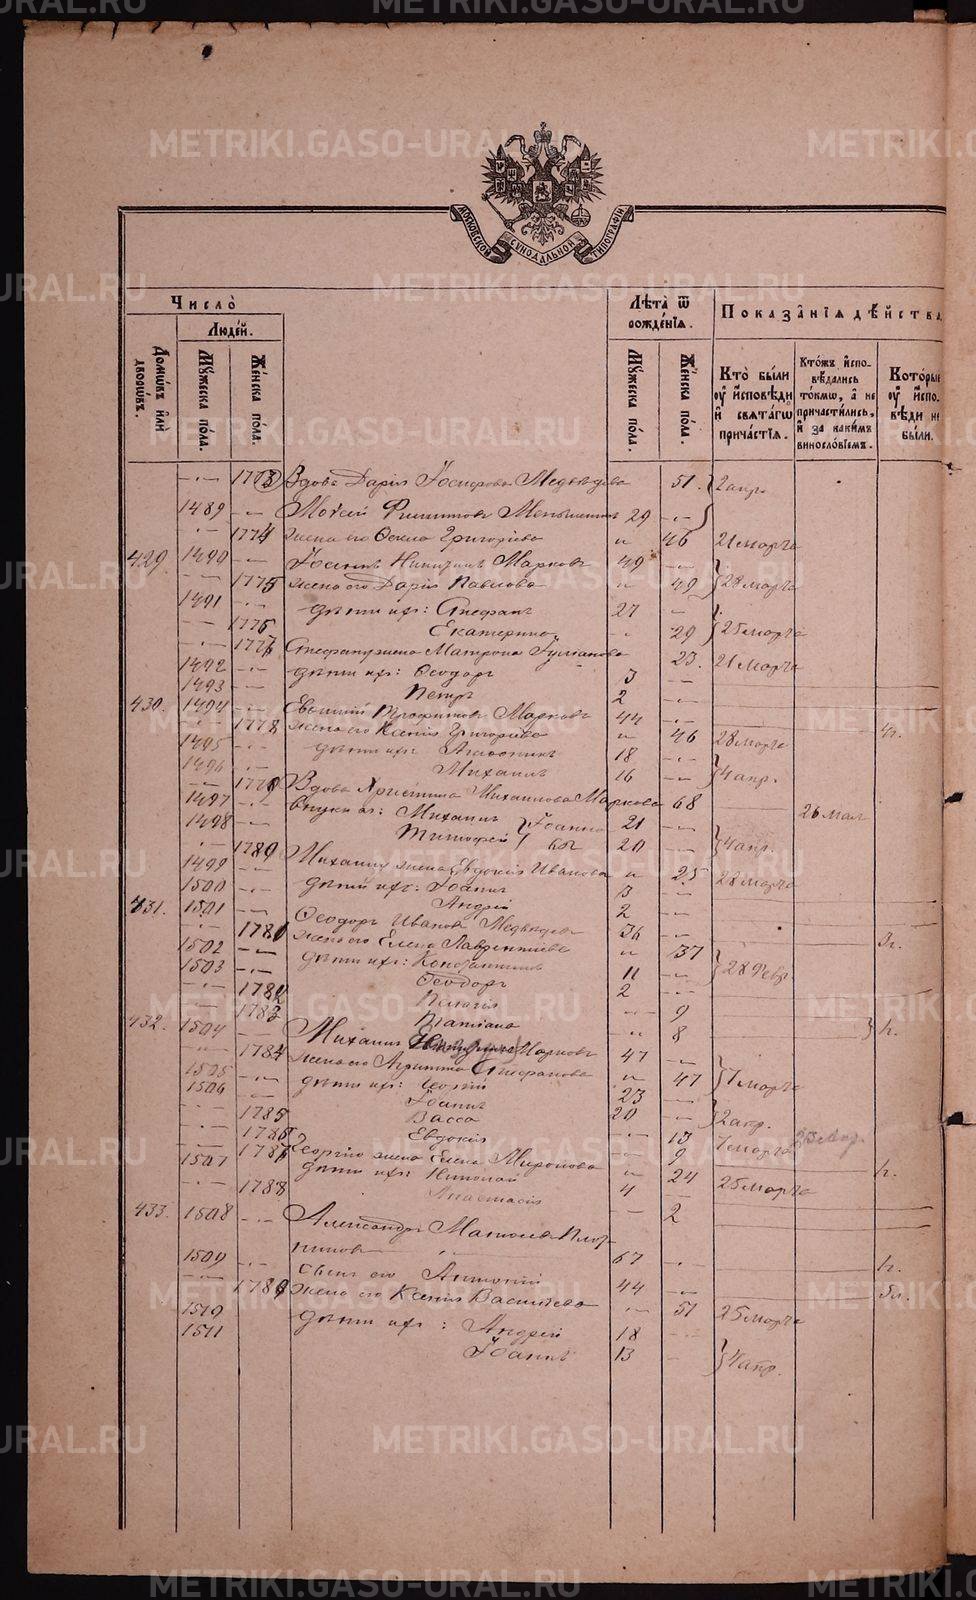 METRIKI.GASO-URAL.RU
МОСКОВСКОЙ СѴНОДАЛЬНОЙ ТИПОГРАФІИ
Число̀
Людéй.
Домѡ́въ и҆лѝ дворѡ́въ.
Мꙋ́жеска по́ла.
Же́нска по́ла.
Лѣ́та ѿ рождéнїѧ.
Мꙋ́жеска по́ла.
Же́нска по́ла.
Показа̑нїѧ дѣ́йства
Кто̀ бы́ли оу҆ и҆́сповѣди и҆ свѧта́гѡ прича́стїѧ.
Кто́жъ и҆сповѣ́дались то́кмѡ, а҆ не причасти́лись, и҆ за каки́мъ винослѡ́вїемъ.
Кото́рые оу҆ и҆́сповѣди не бы́ли.
-- 1773 Вдова Дарія Іосифова Медвѣдева 51. 2 апр.
1489 -- Моѵсей Филиппов Меньшенин 29 --
-- 1774 жена его Ѳекла Григорьева " 46 21 марта
429. 1490 -- Іоаннъ Никитинъ Марковъ 49 --
-- 1775 жена его Дарія Павлова " 49 28 марта
1491 -- дѣти ихъ: Стефанъ 27 --
-- 1776 Екатерина - 29 25 марта
-- 1777 Стефана жена Матрона 23. 21 марта
1492 -- дѣти ихъ: Ѳеодоръ 3 --
1493 -- Петръ 2 --
430. 1494 -- Евфимій Трофимовъ Марковъ 44 -- 4 г.
-- 1778 жена его Ксенія Григорьева " 46 28 марта
1495 -- дѣти ихъ: Агафоникъ 18 --
1496 -- Михаилъ 16 -- 4 апр.
-- 1779 Вдова Христина Михаилова Маркова 68 26 мая
1497 -- внуки ея: Михаилъ 21 --
1498 -- Тимофей 20 -- 4 апр.
-- 1780 Михаила жена Евдокія Иванова " 25 28 марта
1499 -- дѣти ихъ: Іоаннъ 3 --
1500 -- Андрей 2 --
431. 1501 -- Ѳеодоръ Ивановъ Медвѣдевъ 36 -- 3 г.
-- 1781 жена его Елена Лаврентіева " 37
1502 -- дѣти ихъ: Константинъ 11 -- 28 февр.
1503 -- Ѳеодоръ 2 --
-- 1782 Пелагія - 9
-- 1783 Татіана " 8
432. 1504 -- Михаилъ Марковъ 47 --
-- 1784 жена его Агриппина Стефанова " 47 7 марта
1505 -- дѣти ихъ: Георгій 23 --
1506 -- Іоаннъ 20 -- 2 апр.
-- 1785 Васса - 13 7 марта
-- 1786 Евдокія - 9
-- 1787 Георгія жена Елена Миронова " 24 25 марта
1507 -- дѣти ихъ: Николай 4 --
-- 1788 Анастасія - 2
433. 1508 -- Александръ 67 --
1509 -- Сынъ его Антоній 44 --
-- 1789 жена его Ксенія Васильева - 51 25 марта
1510 -- дѣти ихъ: Андрей 18 --
1511 Іоаннъ 13 -- 4 апр.